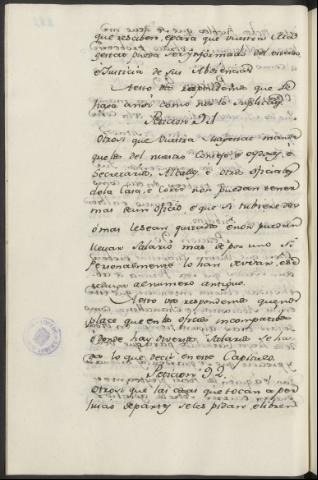 que resaben, e para que vuestra Al
gencia pueda ser informado del
e Justicia de su
A esto vos respondemos que se
hara ansi como nos lo suplicays
Peticion 91
Otrosi que Vuestra Magestad mande
que los del nuestro Consejo, e oydores, e
Secretarios, Alcaldes, e otros oficiales
de la Casa, e Corte non puedan tener
mas de un oficio, e que si tubiere dos
o mas le sean quitados, e non puedan
llevar Salario mas de por uno si
Personalmente lo han servido, e se
reduzga al numero antiguo.
A esto vos respondemos que nos
place que en los oficios incompatibles
o donde hay diversos Salarios se ha
ga lo que decis en este Capitulo.
Peticion 92
Otrosi que las cosas que tocan a per
juicio de partes se les pidan, e libren